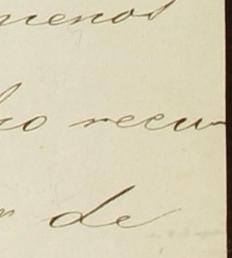 menos
co recu
r de